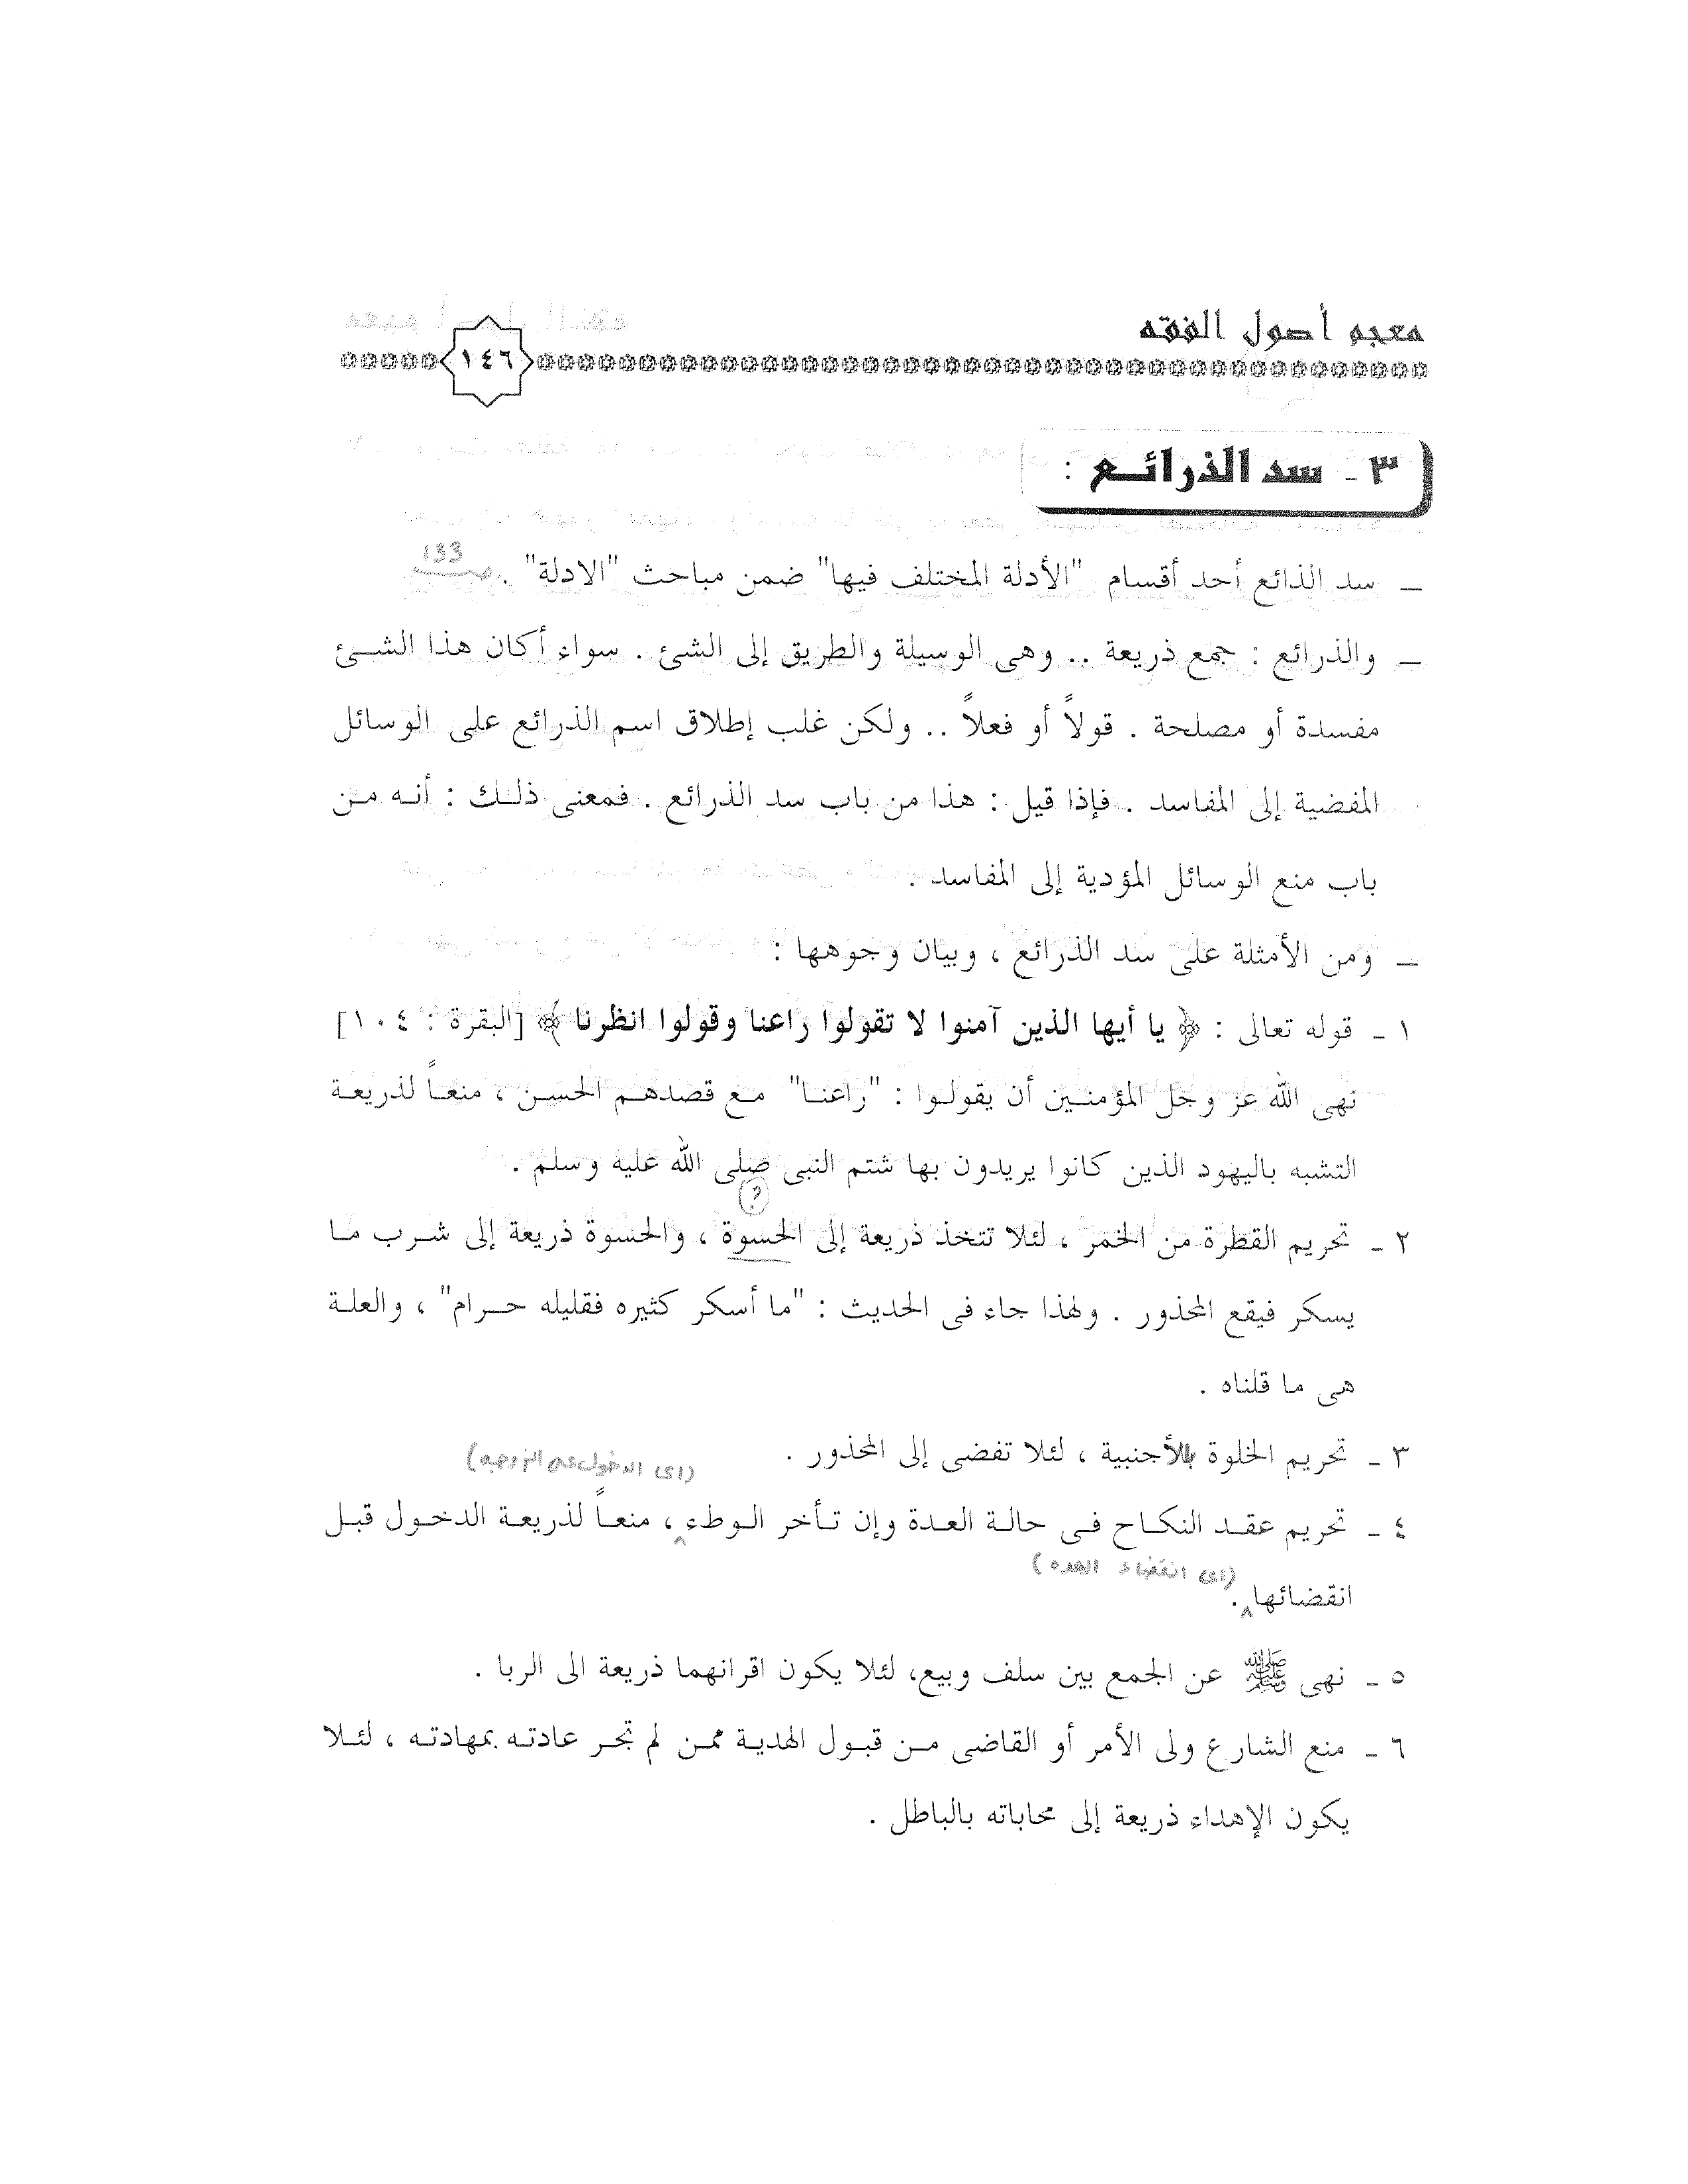 معجم أصول الفقه
١٤٦
٣ - سد الذرائع :
ــ سد الذائع أحد أقسام "الأدلة المختلف فيها" ضمن مباحث "الادلة" . صـ 133
ــ والذرائع : جمع ذريعة .. وهى الوسيلة والطريق إلى الشئ . سواء أكان هذا الشئ
مفسدة أو مصلحة . قولاً أو فعلاً .. ولكن غلب إطلاق اسم الذرائع على الوسائل
المفضية إلى المفاسد . فإذا قيل : هذا من باب سد الذرائع . فمعنى ذلك : أنه من
باب منع الوسائل المؤدية إلى المفاسد .
ــ ومن الأمثلة على سد الذرائع ، وبيان وجوهها :
١ - قوله تعالى : ﴿ يا أيها الذين آمنوا لا تقولوا راعنا وقولوا انظرنا ﴾ [البقرة : ١٠٤]
نهى الله عز وجل المؤمنين أن يقولوا : "راعنا" مع قصدهم الحسن ، منعاً لذريعة
التشبه باليهود الذين كانوا يريدون بها شتم النبى صلى الله عليه وسلم .
؟
٢ - تحريم القطرة من الخمر ، لئلا تتخذ ذريعة إلى الحسوة ، والحسوة ذريعة إلى شرب ما
يسكر فيقع المحذور . ولهذا جاء فى الحديث : "ما أسكر كثيره فقليله حرام" ، والعلة
هى ما قلناه .
٣ - تحريم الخلوة بالأجنبية ، لئلا تفضى إلى المحذور .
(اى الدخول على الزوجه)
٤ - تحريم عقد النكاح فى حالة العدة وإن تأخر الوطء ، منعاً لذريعة الدخول قبل
(اى انقضاء العده)
انقضائها .
٥ - نهى ﷺ عن الجمع بين سلف وبيع، لئلا يكون اقرانهما ذريعة الى الربا .
٦ - منع الشارع ولى الأمر أو القاضى من قبول الهدية ممن لم تجر عادته بمهادته ، لئلا
يكون الإهداء ذريعة إلى محاباته بالباطل .